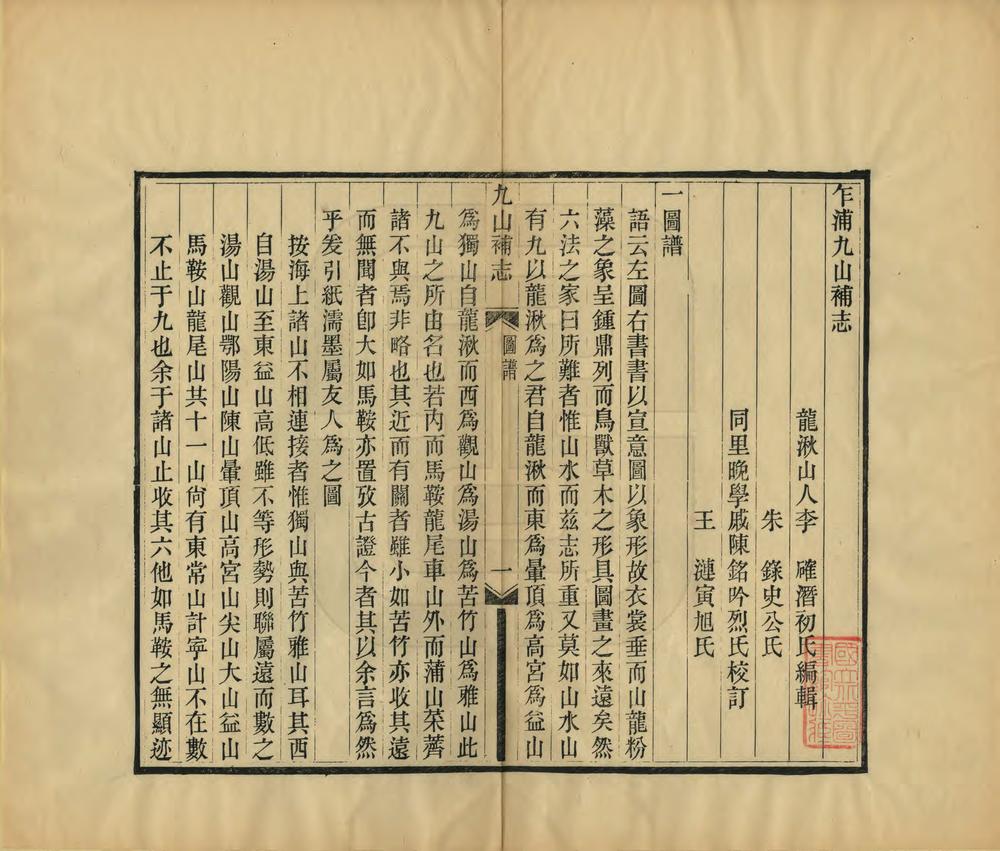 乍浦九山補志
龍湫山人李　確潛初氏編輯
朱　籙史公氏
同里晚學戚陳銘吟烈氏校訂
王　漣寅旭氏
一圖譜
語云左圖右書書以宣意圖以象形故衣裳垂而山龍粉
藻之象呈鍾鼎列而鳥獸草木之形具圖畫之來遠矣然
六法之家曰所難者惟山水而兹志所重又莫如山水山
有九以龍湫爲之君自龍湫而東爲暈頂爲高宮爲益山
九山補志
圖譜
一
爲獨山自龍湫而西爲觀山爲湯山爲苦竹山爲雅山此
九山之所由名也若内而馬鞍龍尾車山外而蒲山菜薺
諸不與焉非略也其近而有關者雖小如苦竹亦收其遠
而無聞者卽大如馬鞍亦置攷古證今者其以余言爲然
乎爰引紙濡墨屬友人爲之圖
按海上諸山不相連接者惟獨山與苦竹雅山耳其西
自湯山至東益山高低雖不等形勢則聯屬遠而數之
湯山觀山鄂陽山陳山暈頂山高宮山尖山大山益山
馬鞍山龍尾山其十一山尙有東常山計寧山不在數
不止于九也余于諸山止收其六他如馬鞍之無顯迹